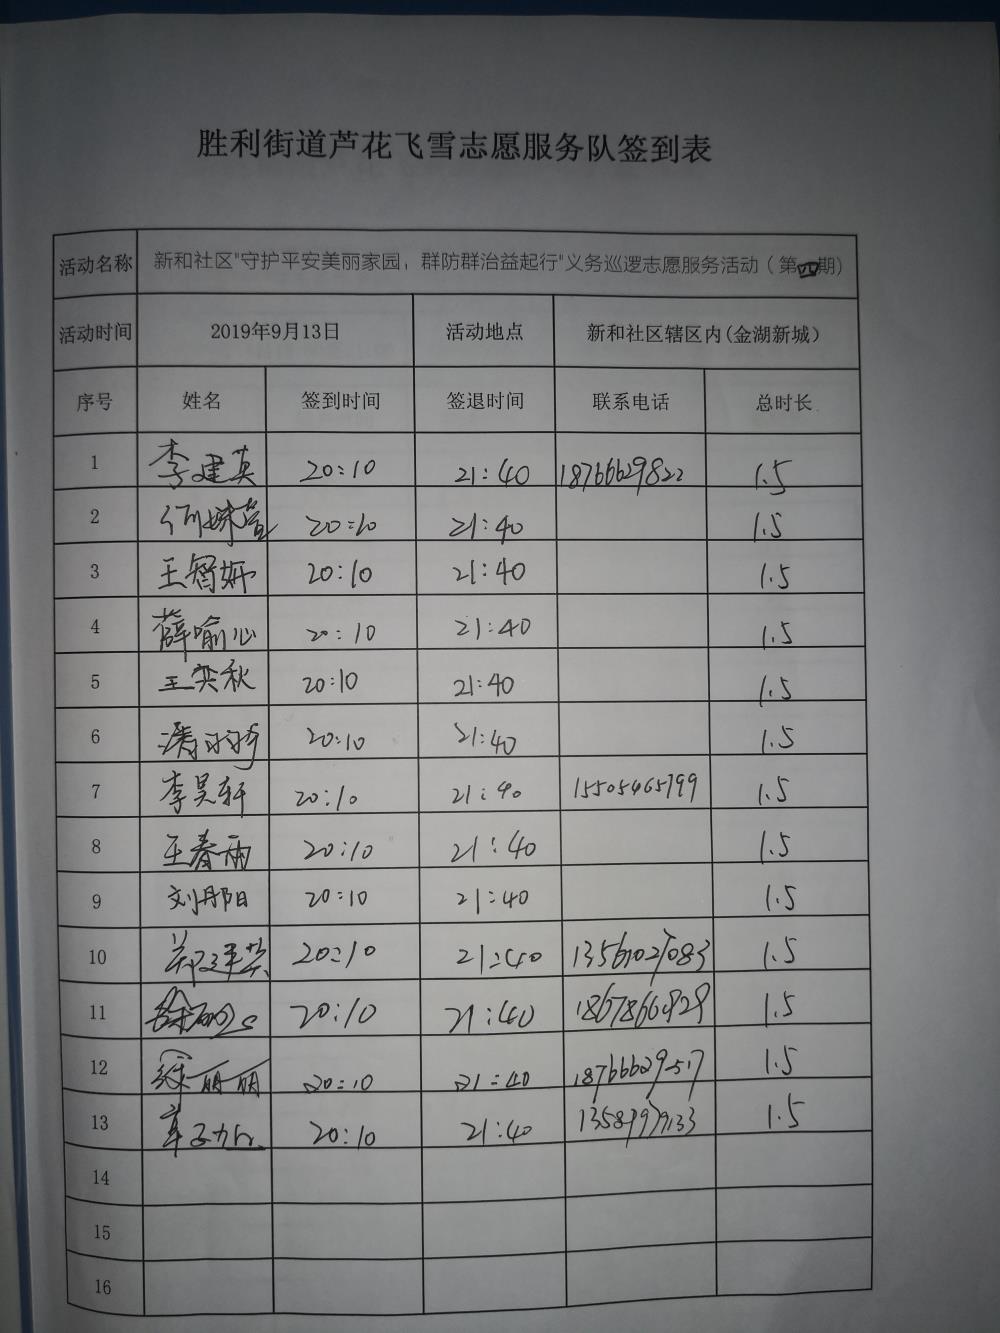 胜利街道芦花飞雪志愿服务队签到表
活动名称 新和社区"守护平安美丽家园，群防群治益起行"义务巡逻志愿服务活动（第四期）
活动时间 2019年9月13日 活动地点 新和社区辖区内(金湖新城)
序号 姓名 签到时间 签退时间 联系电话 总时长
1 李建英 20:10 21:40 18766629822 1.5
2 20:10 21:40 1.5
3 王智妍 20:10 21:40 1.5
4 薛喻心 20:10 21:40 1.5
5 王奕秋 20:10 21:40 1.5
6 20:10 21:40 1.5
7 李昊轩 20:10 21:40 15505465799 1.5
8 王春雨 20:10 21:40 1.5
9 刘丹阳 20:10 21:40 1.5
10 郑建英 20:10 21:40 1.5
11 20:10 21:40 1.5
12 丽丽 20:10 21:40 18766629517 1.5
13 20:10 21:40 1.5
14
15
16